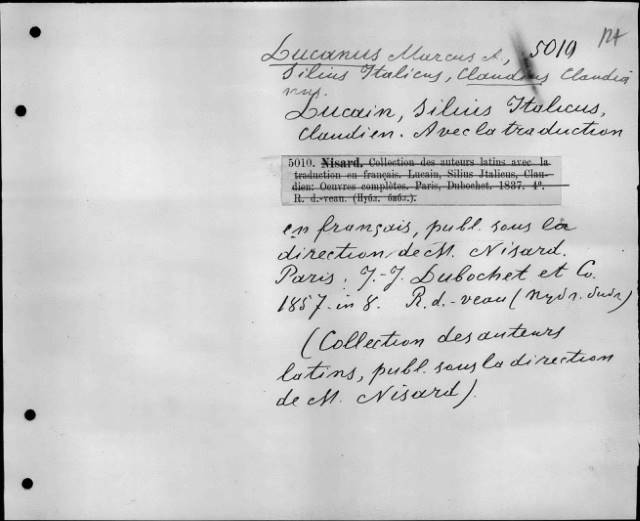 Lucanus Marcus A., 5010
Silius Italicus, Claudius Claudia
nus.
Lucain, Silius Italicus,
Claudien. Avec la traduction
5010. Nisard. Collection des auteurs latins avec la
traduction en français. Lucain, Silius Jtalicus, Clau-
dien: Oeuvres complètes. Paris, Dubochet. 1837. 4°.
R. d.-veau. (Публ. библ.).
en français, publ. sous la
direction de M. Nisard.
Paris. J.-J. Dubochet et Co.
1857. in 8. R. d.-veau (
(Collection des auteurs
latins, publ. sous la direction
de M. Nisard).